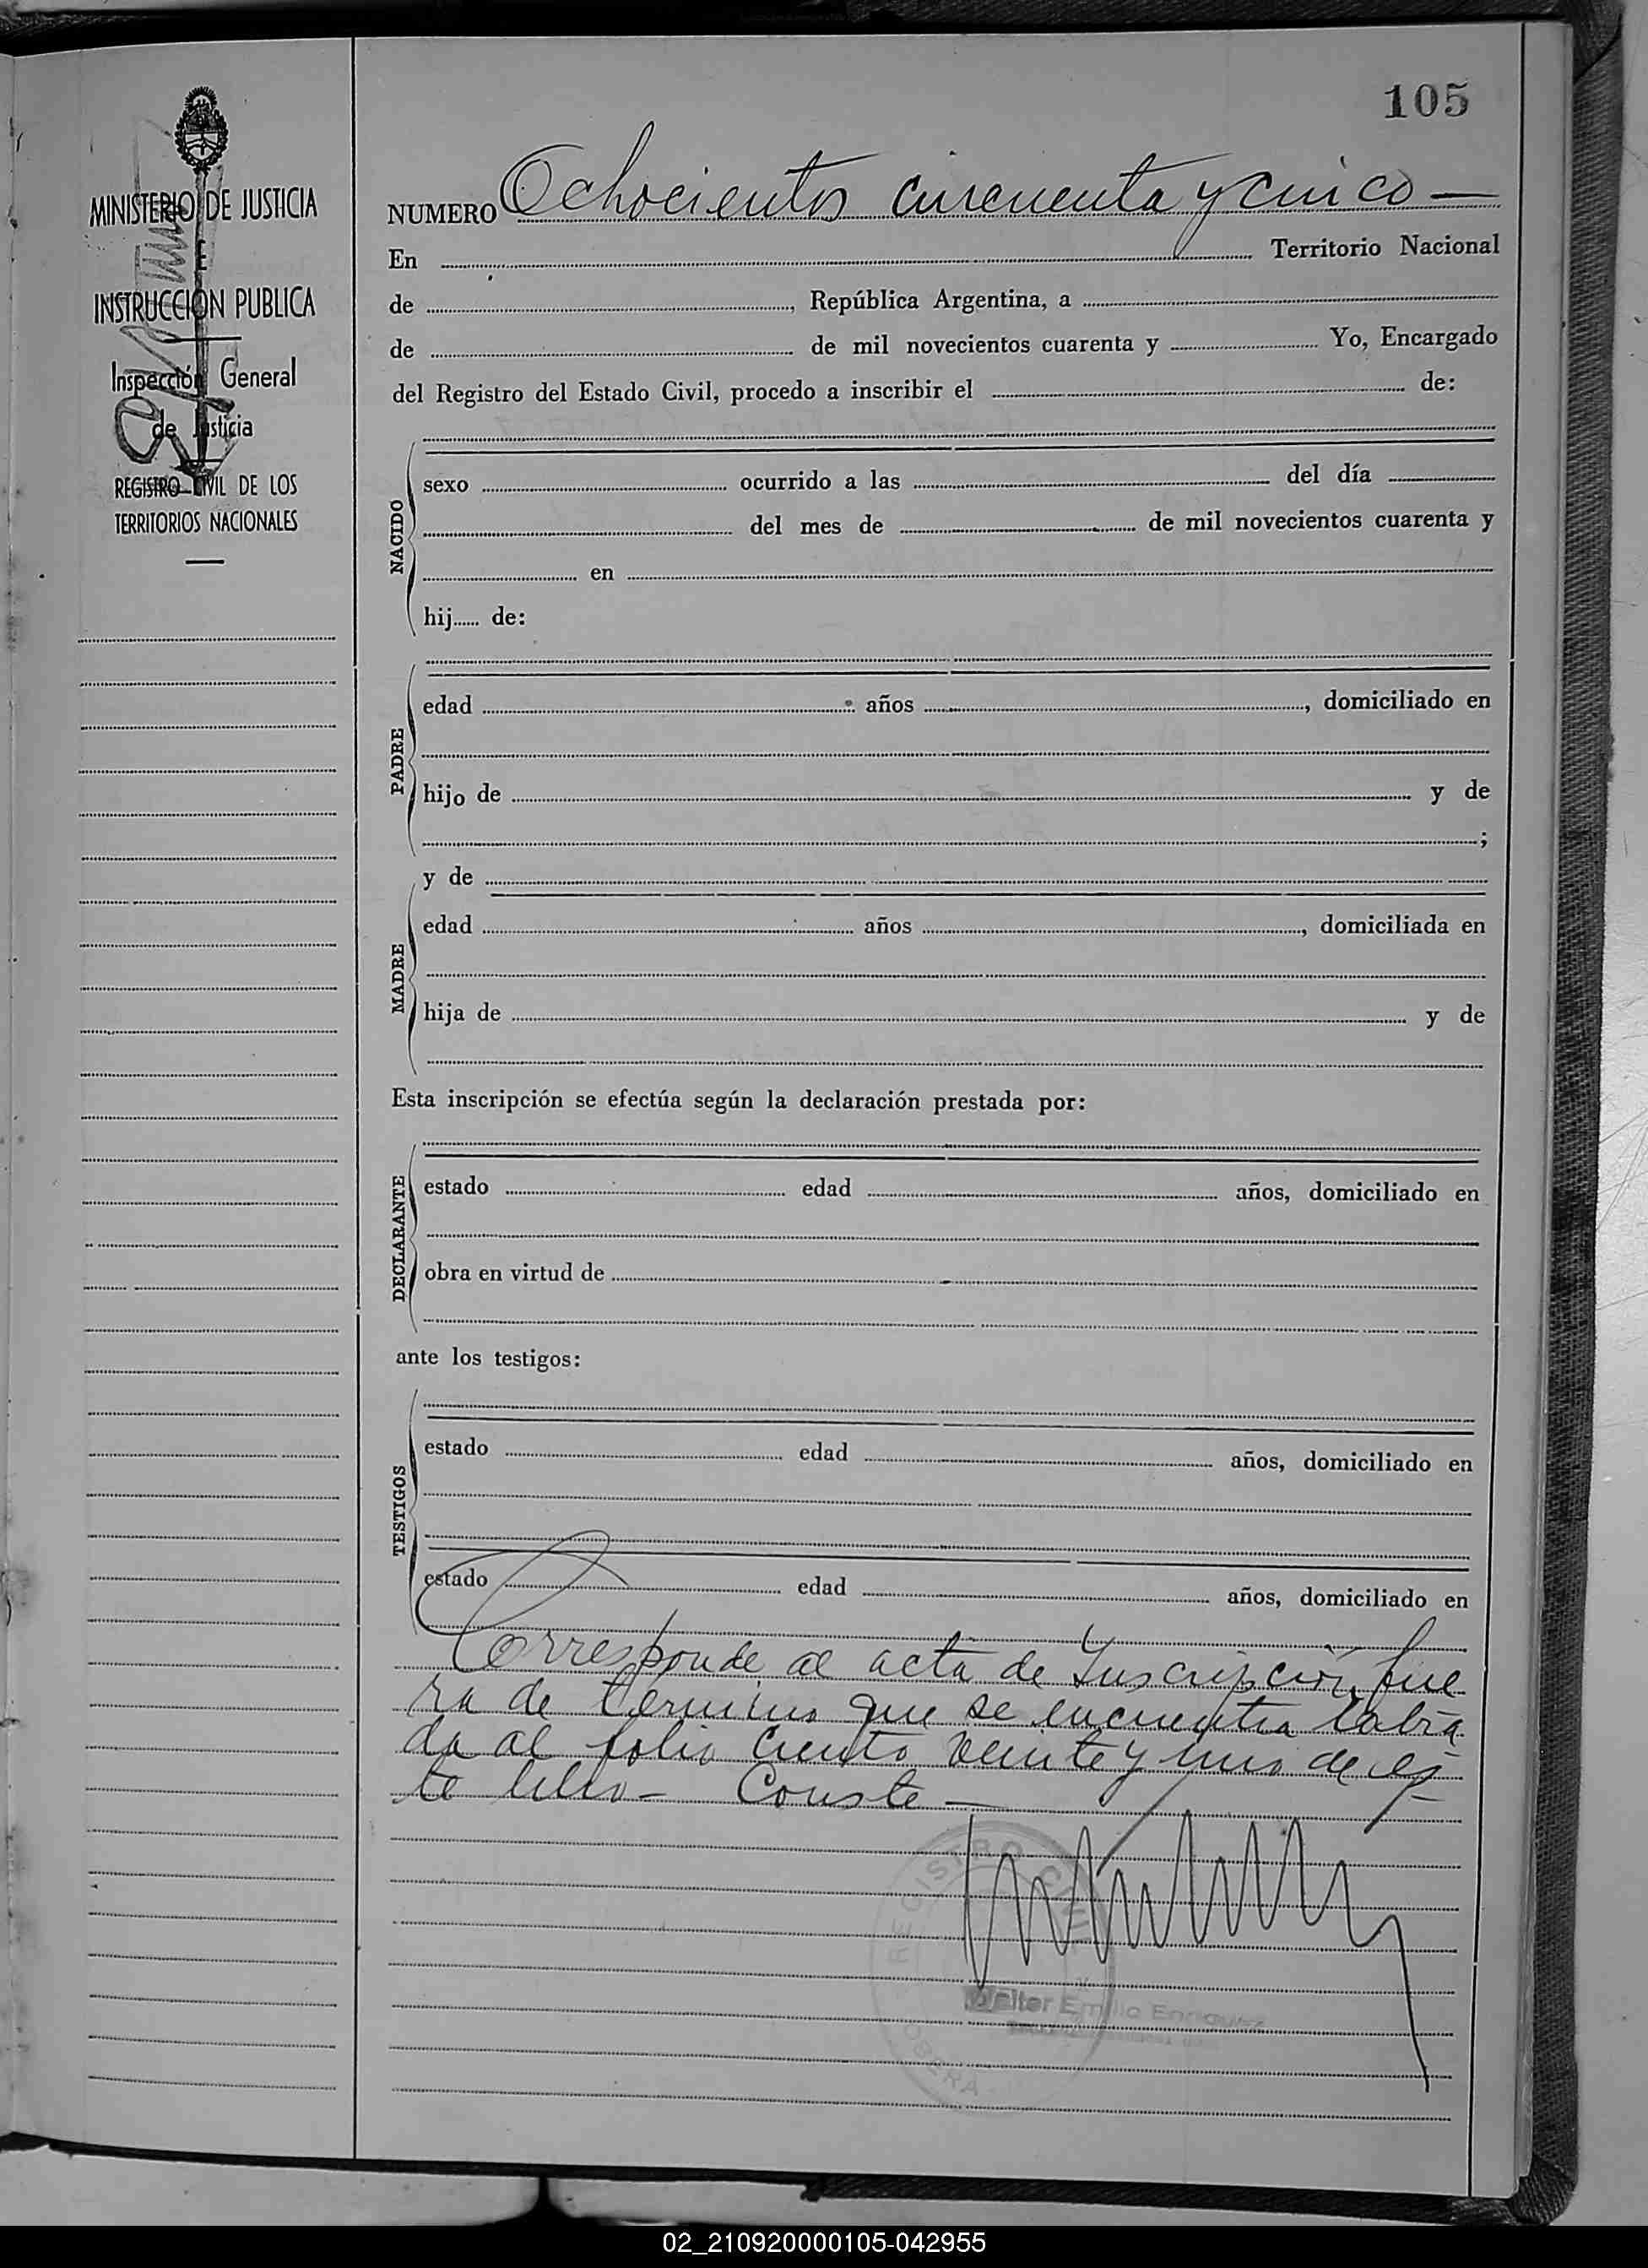 105
MINISTERIO DE JUSTICIA
E
INSTRUCCIÓN PUBLICA
Inspección General
de Justicia
REGISTRO CIVIL DE LOS
TERRITORIOS NACIONALES
NUMERO Ochocientos cincuenta y cinco —
En Territorio Nacional
de , República Argentina, a
de de mil novecientos cuarenta y Yo, Encargado
del Registro del Estado Civil, procedo a inscribir el de:
NACIDO
sexo ocurrido a las del día
del mes de de mil novecientos cuarenta y
en
hij...... de:
PADRE
edad años , domiciliado en
hijo de y de
;
MADRE
y de
edad años , domiciliada en
hija de y de
Esta inscripción se efectúa según la declaración prestada por:
DECLARANTE
estado edad años, domiciliado en
obra en virtud de
ante los testigos:
TESTIGOS
estado edad años, domiciliado en
estado edad años, domiciliado en
Corresponde al acta de Inscripción fue
ra de termino que se encuentra labra
da al folio ciento veinte y uno de es
te libro - Conste —
REGISTRO CIVIL
Walter Emilio Enriquez
OBERA
02_210920000105-042955